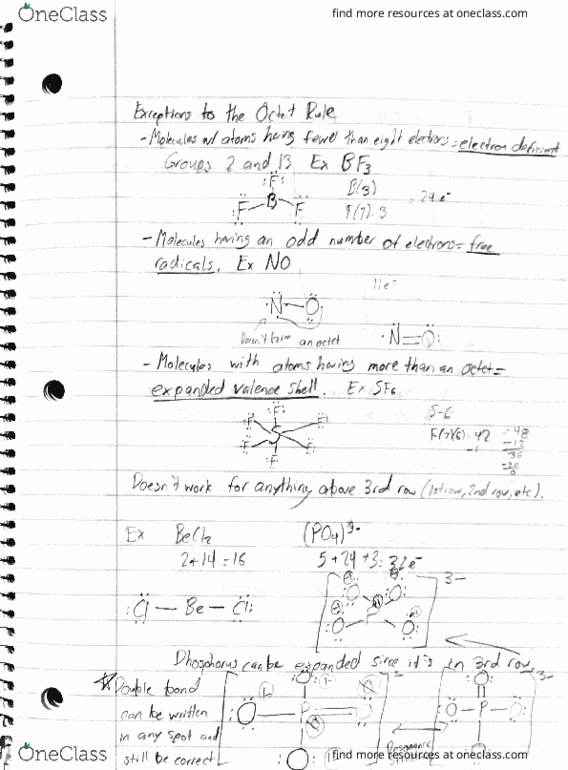 OneClass
find more resources at oneclass.com
Exceptions to the Octet Rule
- Molecules w/ atoms having fewer than eight electrons = electron deficient
Groups 2 and 13 Ex BF3
B(3)
F(7)·3
= 24 e-
F
B
F F
- Molecules having an odd number of electrons = free
radicals. Ex NO
11e-
N - O
Doesn't form an octet
N = O
- Molecules with atoms having more than an octet =
expanded valence shell. Ex SF6
S-6
F(7)(6) = 42
= 48
- 12
36
F
F F
S
F F
F
Doesn't work for anything above 3rd row (1st row, 2nd row, etc).
Ex BeCl2 (PO4)3-
2+14=16 5+24+3=32e-
Cl — Be — Cl
3-
O O
P
O O
Phosphorus can be expanded since it's in 3rd row
Double bond
can be written
in any spot and
still be correct
O
O P O
O
3-
O
O P O
Resonance
OneClass
find more resources at oneclass.com